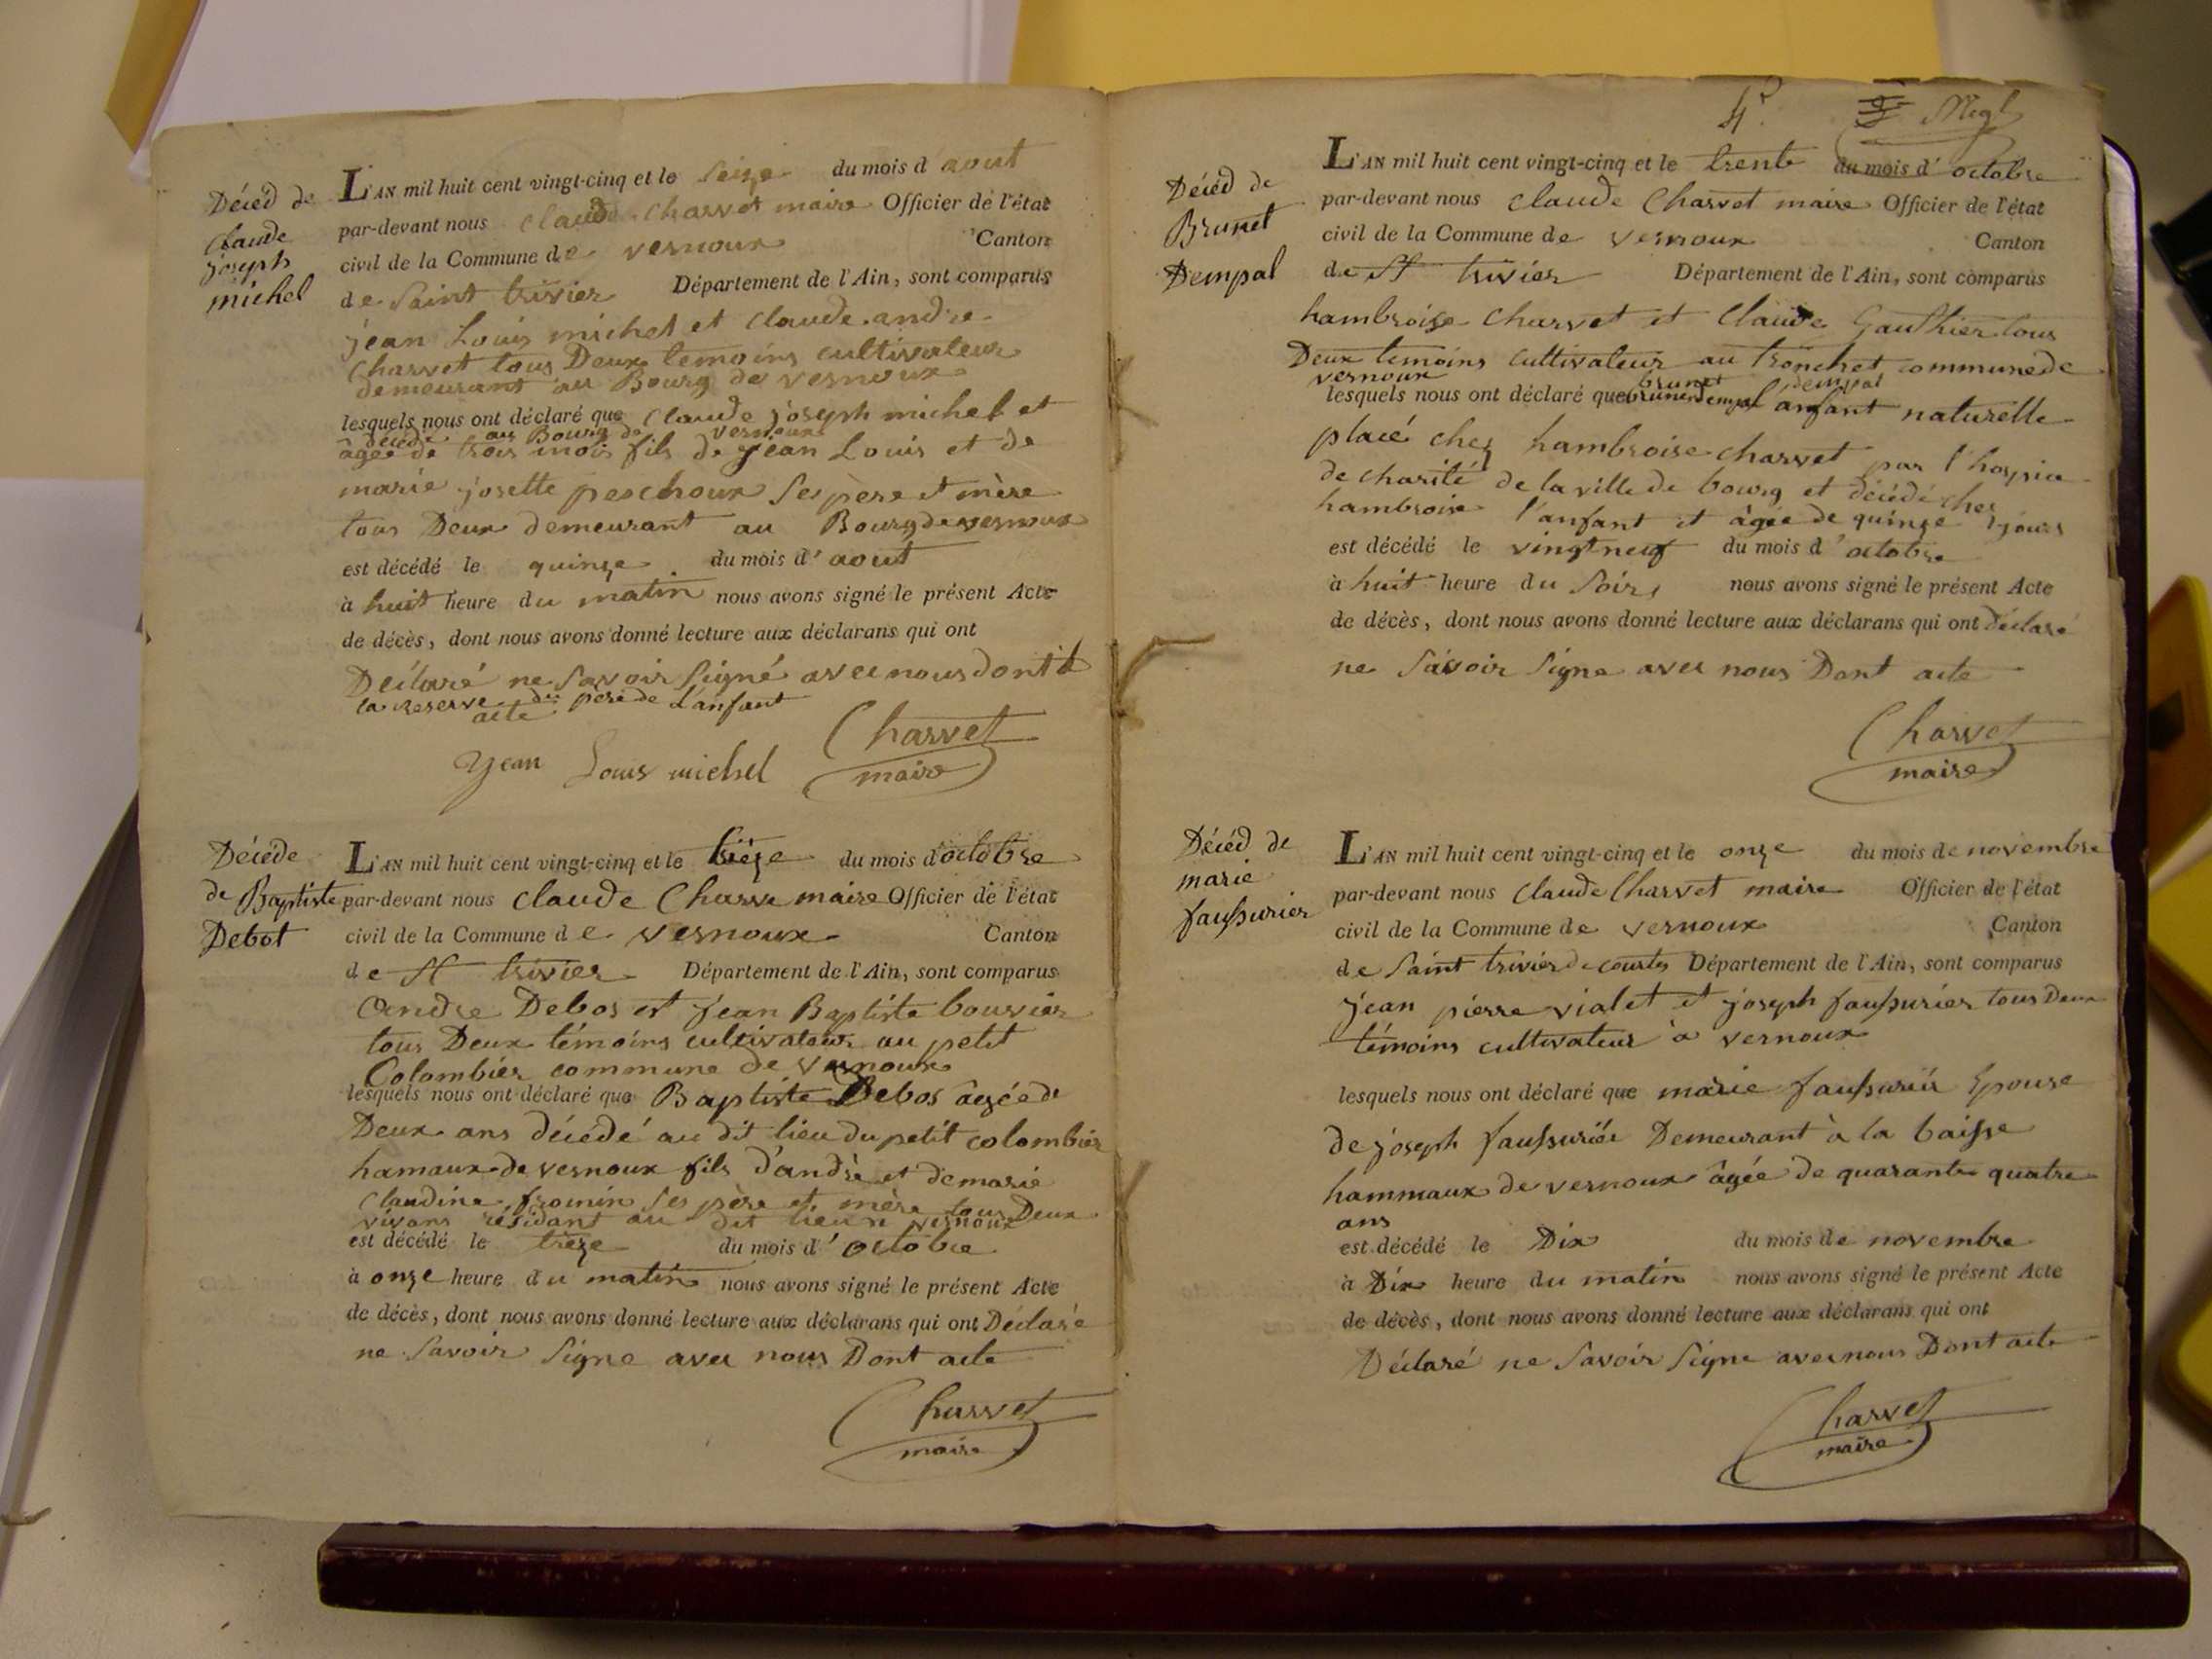 Décéd de
Claude
joseph
michel
L'AN mil huit cent vingt-cinq et le seize du mois d'aout
par-devant nous claude charvet maire Officier de l'état
civil de la Commune de vernoux Canton
de Saint trivier Département de l'Ain, sont comparus
jean Louis michel et claude andre
Charvet tous Deux temoins cultivateur
demeurant au Bourg de vernoux
lesquels nous ont déclaré que Claude joseph michel et
décédé au Bourg de vernoux
âgée de trois mois fils de jean Louis et de
marie josette peschoux Ses père et mère
tous Deux demeurant au Bourg de vernoux
est décédé le quinze du mois d'aout
à huit heure du matin nous avons signé le présent Acte
de décès, dont nous avons donné lecture aux déclarans qui ont
Déclaré ne Savoir Signé avec nous dont
la Reserve du père de L'anfant
acte
jean Louis michel Charvet
maire
Décéde
de Baptiste
Debot
L'AN mil huit cent vingt-cinq et le treize du mois d'octobre
par-devant nous claude Charve maire Officier de l'état
civil de la Commune de vernoux Canton
de St trivier Département de l'Ain, sont comparus
Andre Debos et jean Baptiste bouvier
tous Deux témoins cultivateur au petit
Colombier commune de vernoux
lesquels nous ont déclaré que Baptiste Debos âgée de
Deux ans décédé au dit lieu du petit colombier
hamaux de vernoux fils d'andrè et de marie
Claudine fromin ses père et mère tous Deux
vivans résidant au dit lieu vernoux
est décédé le treze du mois d'octobre
à onze heure du matin nous avons signé le présent Acte
de décès, dont nous avons donné lecture aux déclarans qui ont Déclaré
ne Savoir Signe avec nous Dont acte
Charvet
maire
4e
Décéd de
Brunet
Dempal
L'AN mil huit cent vingt-cinq et le trente du mois d'octobre
par-devant nous claude Charvet maire Officier de l'état
civil de la Commune de vernoux Canton
de St trivier Département de l'Ain, sont comparus
hambroise Charvet et Claude Gauthier tous
Deux temoins cultivateur au tronchet commune de
vernoux
brunet dempal
lesquels nous ont déclaré que anfant naturelle
placé chez hambroise charvet par l'hospice
de charité de la ville de bourg et décédé chez
hambroise l'anfant et âgée de quinze jours
est décédé le vingt neuf du mois d'octobre
à huit heure du Soir, nous avons signé le présent Acte
de décès, dont nous avons donné lecture aux déclarans qui ont déclaré
ne Savoir Signe avec nous Dont acte
Charvet
maire
Décéd de
marie
faussurier
L'AN mil huit cent vingt-cinq et le onze du mois de novembre
par-devant nous claude Charvet maire Officier de l'état
civil de la Commune de vernoux Canton
de Saint trivier de courtes Département de l'Ain, sont comparus
jean pierre vialet et joseph faussurier tous Deux
témoins cultivateur à vernoux
lesquels nous ont déclaré que marie faussurier Epouse
de joseph faussurier Demeurant à la baisse
hammaux de vernoux âgée de quarante quatre
ans
est décédé le Dix du mois de novembre
à Dix heure du matin nous avons signé le présent Acte
de décès, dont nous avons donné lecture aux déclarans qui ont
Déclaré ne Savoir Signe avec nous Dont acte
Charvet
maire